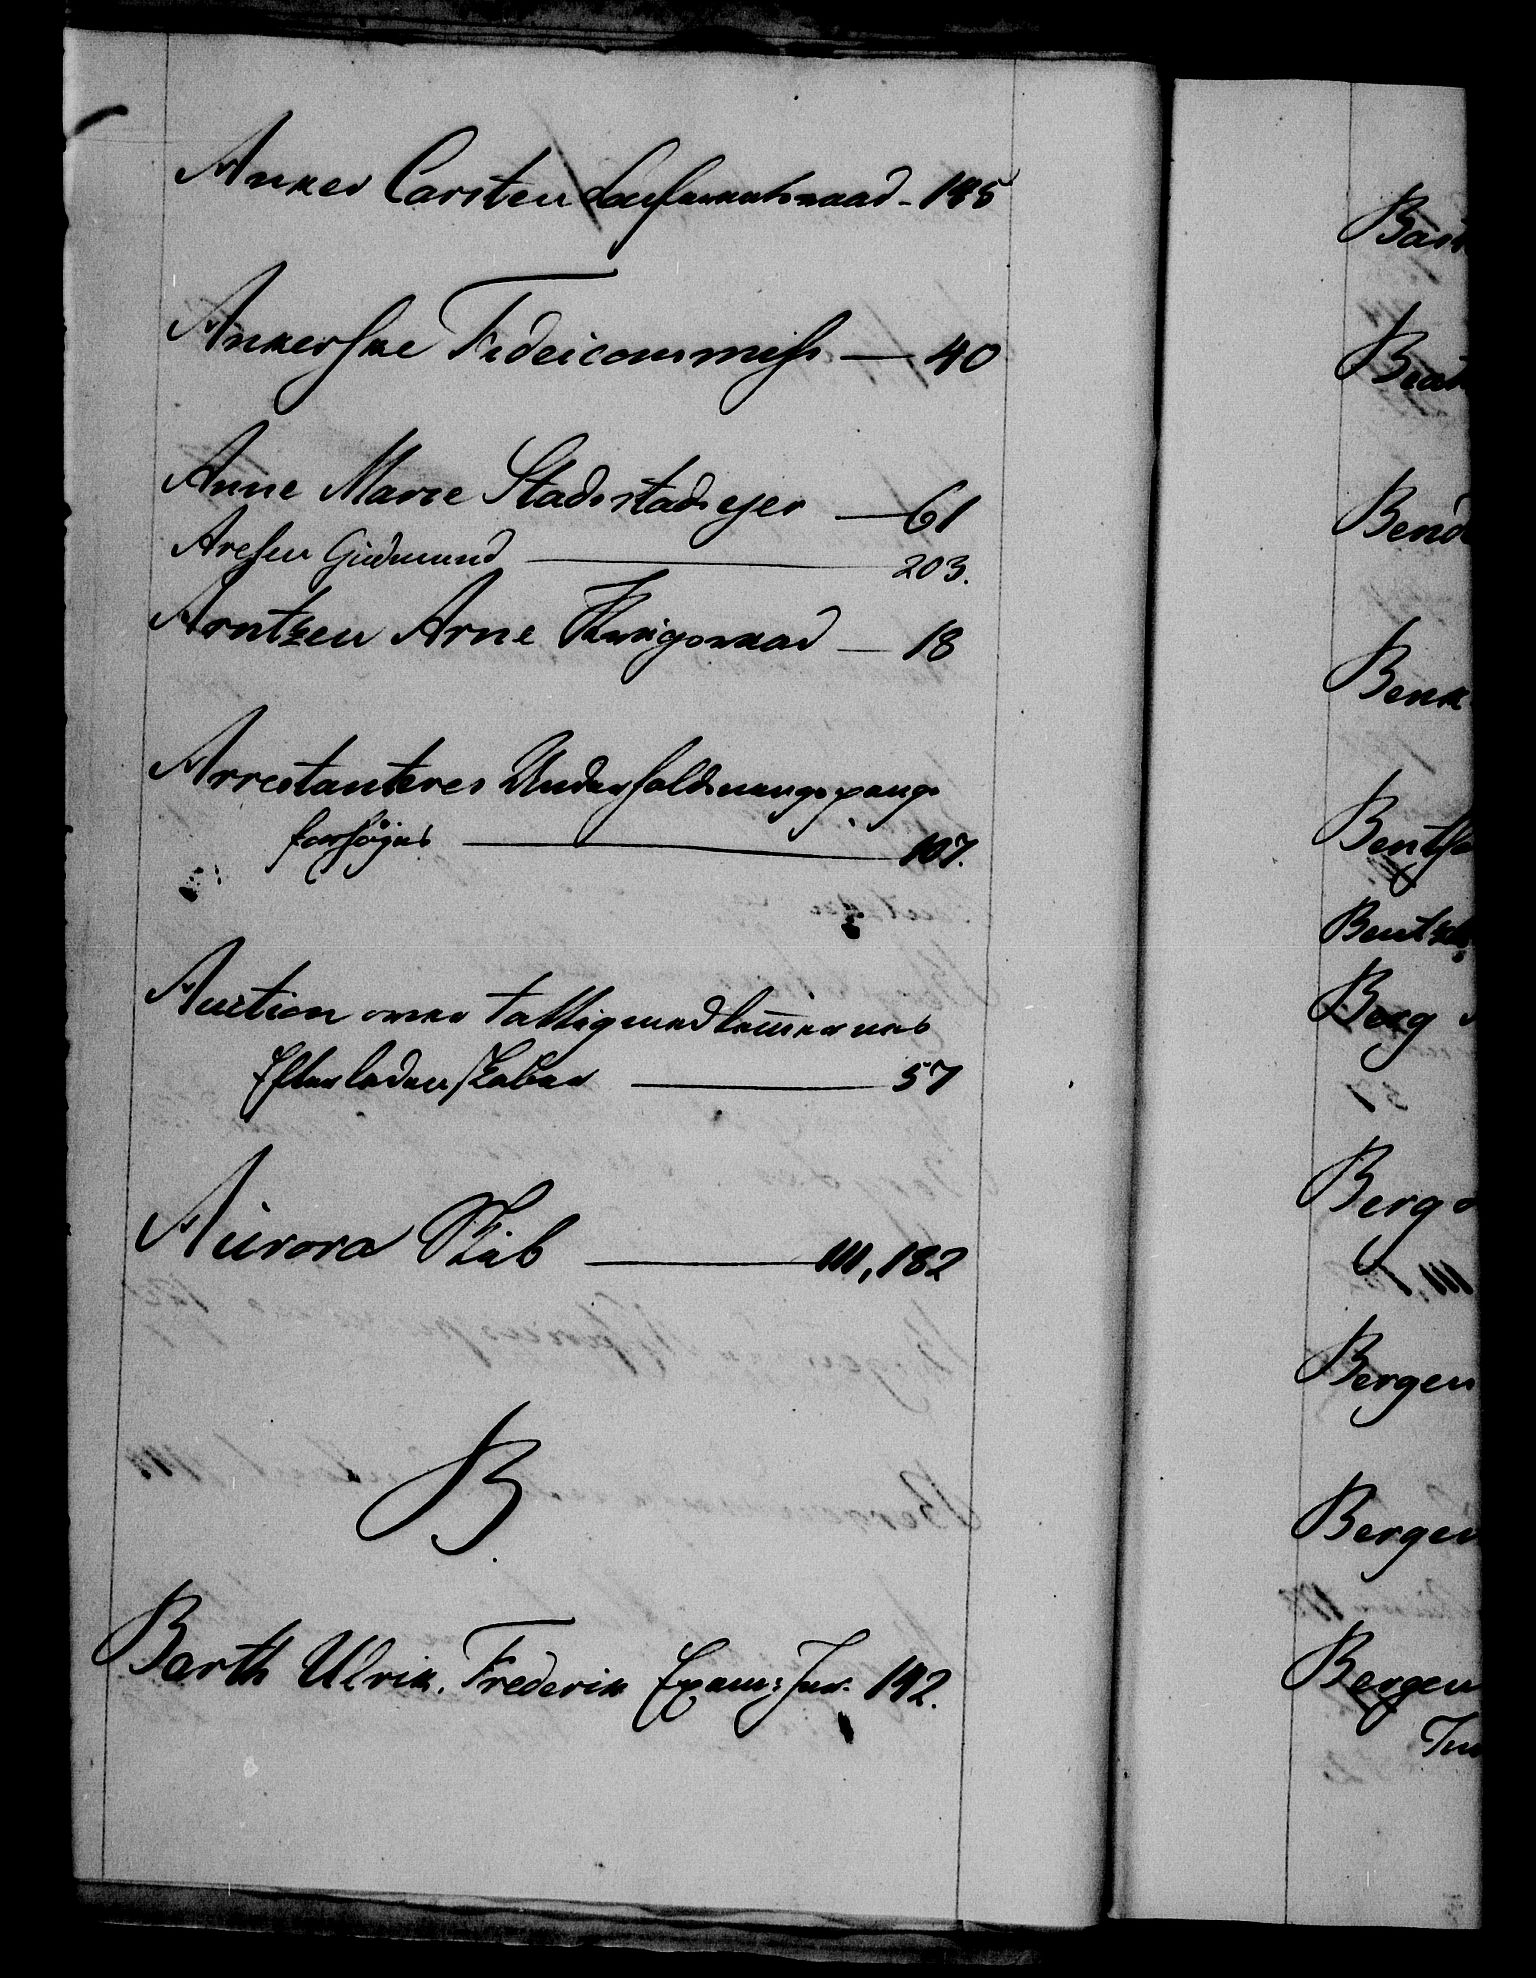 Anker Carsten Conferentsraad - 185
Ankerske Fideicommiss — 40
Anne Marie Stadstads ejer — 61
Aresen Gudmund — 203.
Arntzen Arne Krigsraad — 18
Arrestanteres Underholdnings penge
forhøjes — 107.
Auction over Fattigmedlemernes
Efterladenskaber — 57
Aurora Skib — 111, 182
B
Barth Ulrik. Frederik Exam: Jur. 192.
Bast
Beat
Bend
Benk
Bentse
Bentzen
Berg
Berg
Bergen
Bergen
Bergen